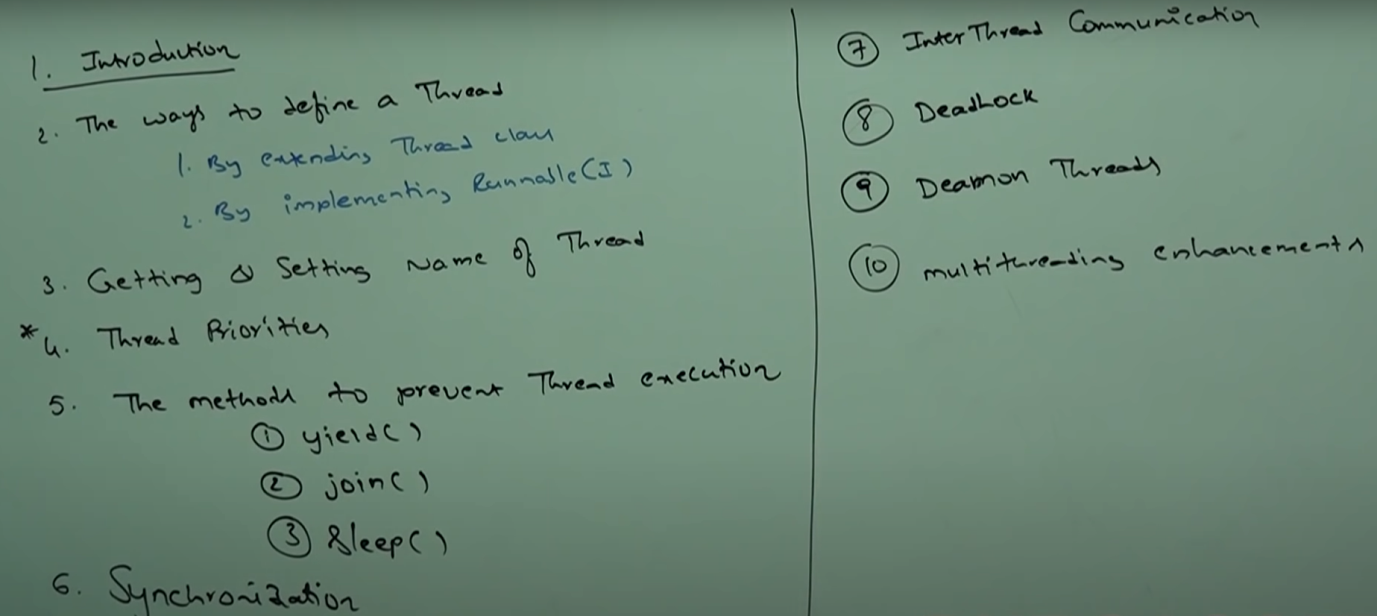 1. Introduction
2. The ways to define a Thread
1. By extending Thread class
2. By implementing Runnable(I)
3. Getting & Setting Name of Thread
*4. Thread Priorities
5. The methods to prevent Thread execution
① yield()
② join()
③ Sleep()
6. Synchronization
⑦ InterThread Communication
⑧ DeadLock
⑨ Deamon Threads
⑩ multithreading enhancements